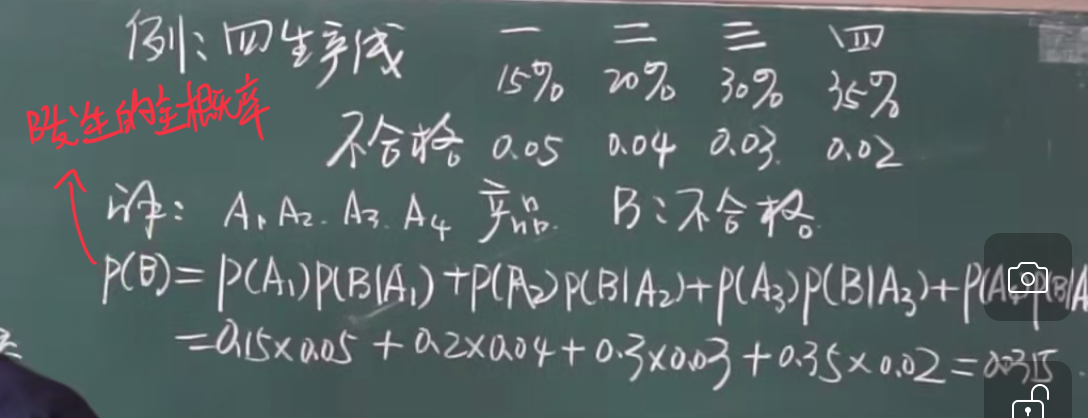 例:四生产线 一 二 三 四
15% 20% 30% 35%
B发生的全概率
不合格 0.05 0.04 0.03 0.02
译: A₁ A₂. A₃. A₄ 产品. B:不合格.
P(B)=P(A₁)P(B|A₁)+P(A₂)P(B|A₂)+P(A₃)P(B|A₃)+P(A₄)P(B|A
=0.15×0.05+0.2×0.04+0.3×0.03+0.35×0.02=0.0315.